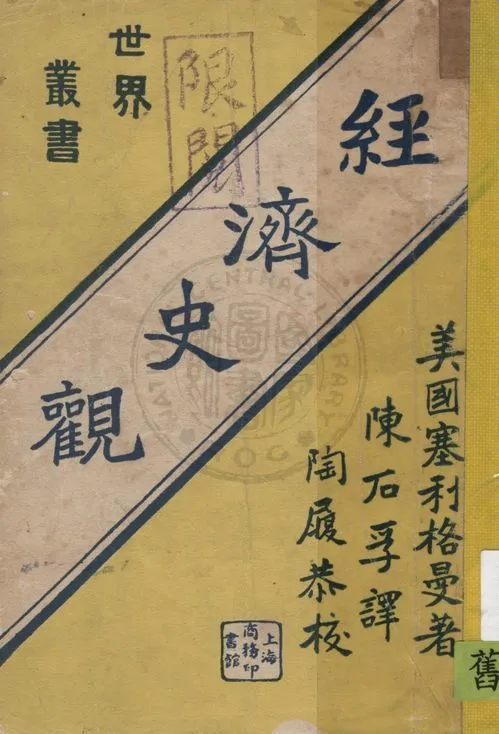 世界
叢書
限閱
經濟史觀
美國塞利格曼著
陳石孚譯
陶履恭校
上海
商務印
書館
舊